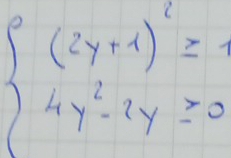 (2y+1)² ≥ 1
4y² - 2y ≥ 0